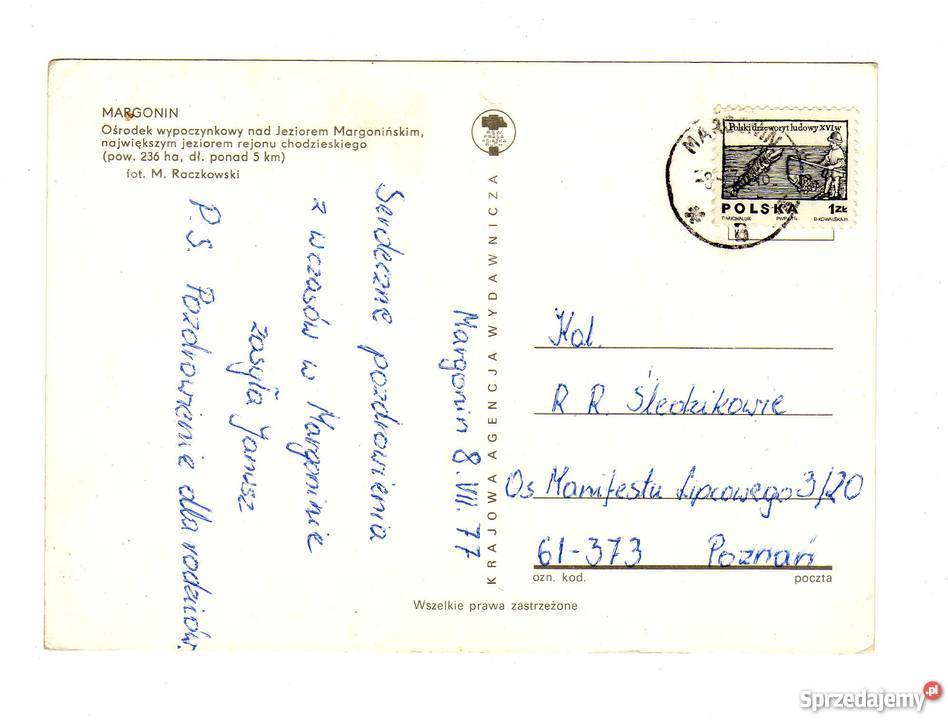 MARGONIN
Ośrodek wypoczynkowy nad Jeziorem Margonińskim,
największym jeziorem rejonu chodzieskiego
(pow. 236 ha, dł. ponad 5 km)
fot. M. Raczkowski
Margonin 8. VII. 77
Serdeczne pozdrowienia
z wczasów w Margoninie
zasyła Janusz
P.S. Pozdrowienie dla rodziców.
KRAJOWA AGENCJA WYDAWNICZA
RSW
PRASA
KSIĄŻKA
RUCH
MARGONIN
B
Polski drzeworyt ludowy XVI w
POLSKA 1ZŁ
T·MICHALUK PWPW B·KOWALSKA
Kol.
R. R. Śledzikowie
Os Manifestu Lipcowego 3/20
61-373 Poznań
ozn. kod. poczta
Wszelkie prawa zastrzeżone
Sprzedajemy.pl